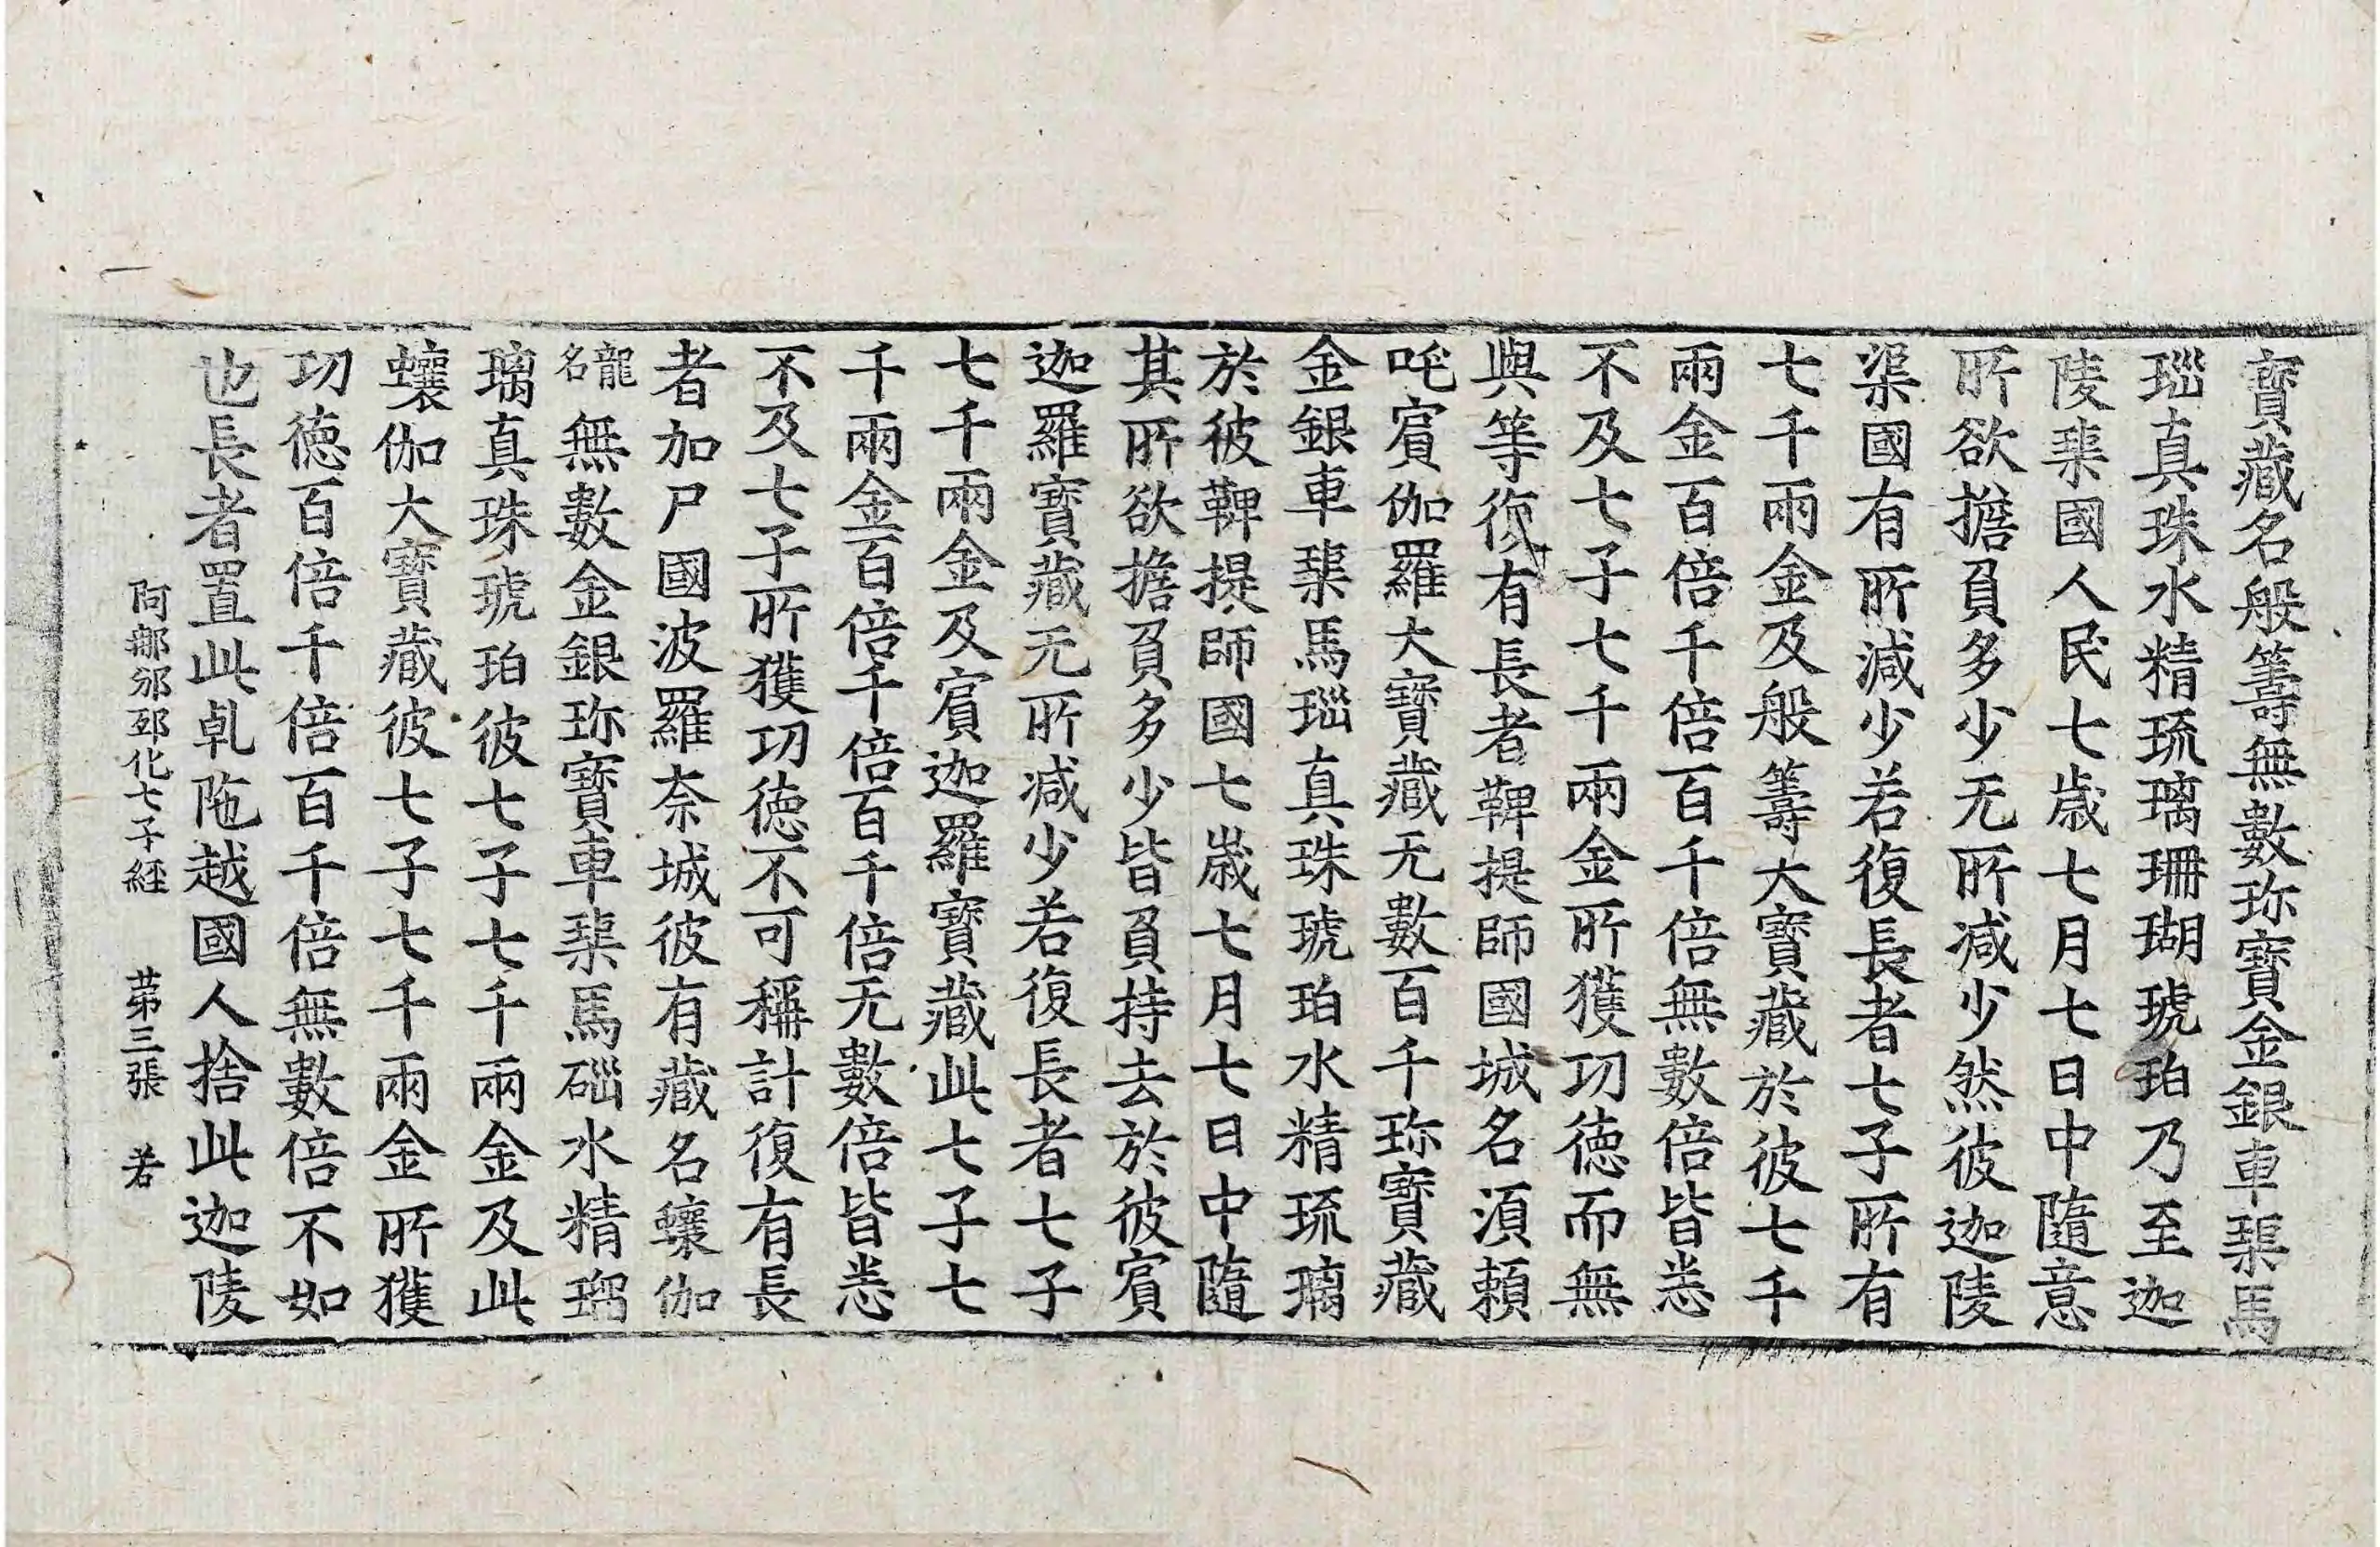 寶藏名般籌無數珎寶金銀車𤦲馬
瑙真珠水精琉璃珊瑚琥珀乃至迦
陵𤦲國人民七歲七月七日中隨意
所欲擔負多少无所減少然彼迦陵
渠國有所減少若復長者七子所有
七千兩金及般籌大寶藏於彼七千
兩金百倍千倍百千倍無數倍皆悉
不及七子七千兩金所獲功德而無
與等復有長者鞞提師國城名湏賴
吒賔伽羅大寶藏无數百千珎寶藏
金銀車𤦲馬瑙真珠琥珀水精琉璃
於彼鞞提師國七歲七月七日中隨
其所欲擔負多少皆負持去於彼賔
迦羅寶藏无所減少若復長者七子
七千兩金及賔迦羅寶藏此七子七
千兩金百倍千倍百千倍无數倍皆悉
不及七子所獲功德不可稱計復有長
者加尸國波羅奈城彼有藏名蠰伽
龍名無數金銀珎寶車𤦲馬碯水精瑠
璃真珠琥珀彼七子七千兩金及此
蠰伽大寶藏彼七子七千兩金所獲
功德百倍千倍百千倍無數倍不如
也長者置此乹陁越國人捨此迦陵
阿𨚗邠邳化七子經 苐三張 若